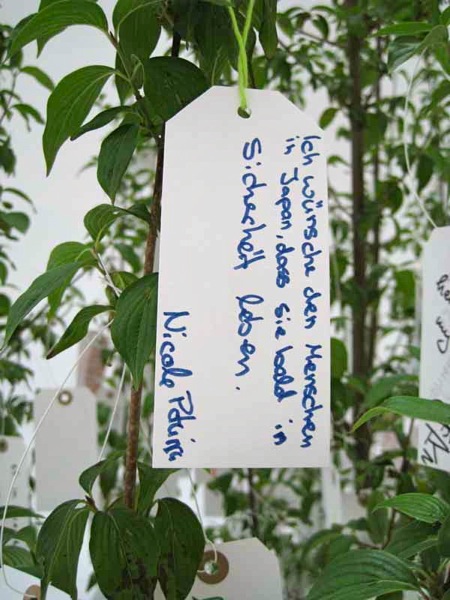 Ich wünsche den Menschen
in Japan, dass sie bald in
Sicherheit leben.
Nicole